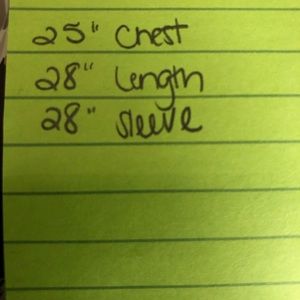 25" Chest
28" Length
28" sleeve